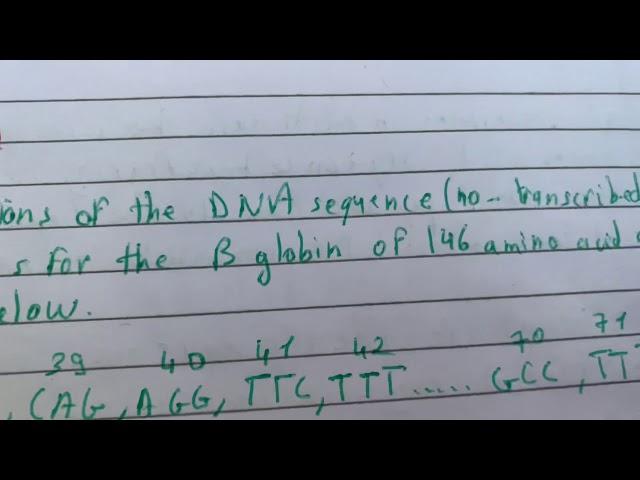 ions of the DNA sequence (no- transcribed
s for the B globin of 146 amino acid
elow.
39 40 41 42 70 71
, CAG, AGG, TTC, TTT ..... GCC, TT